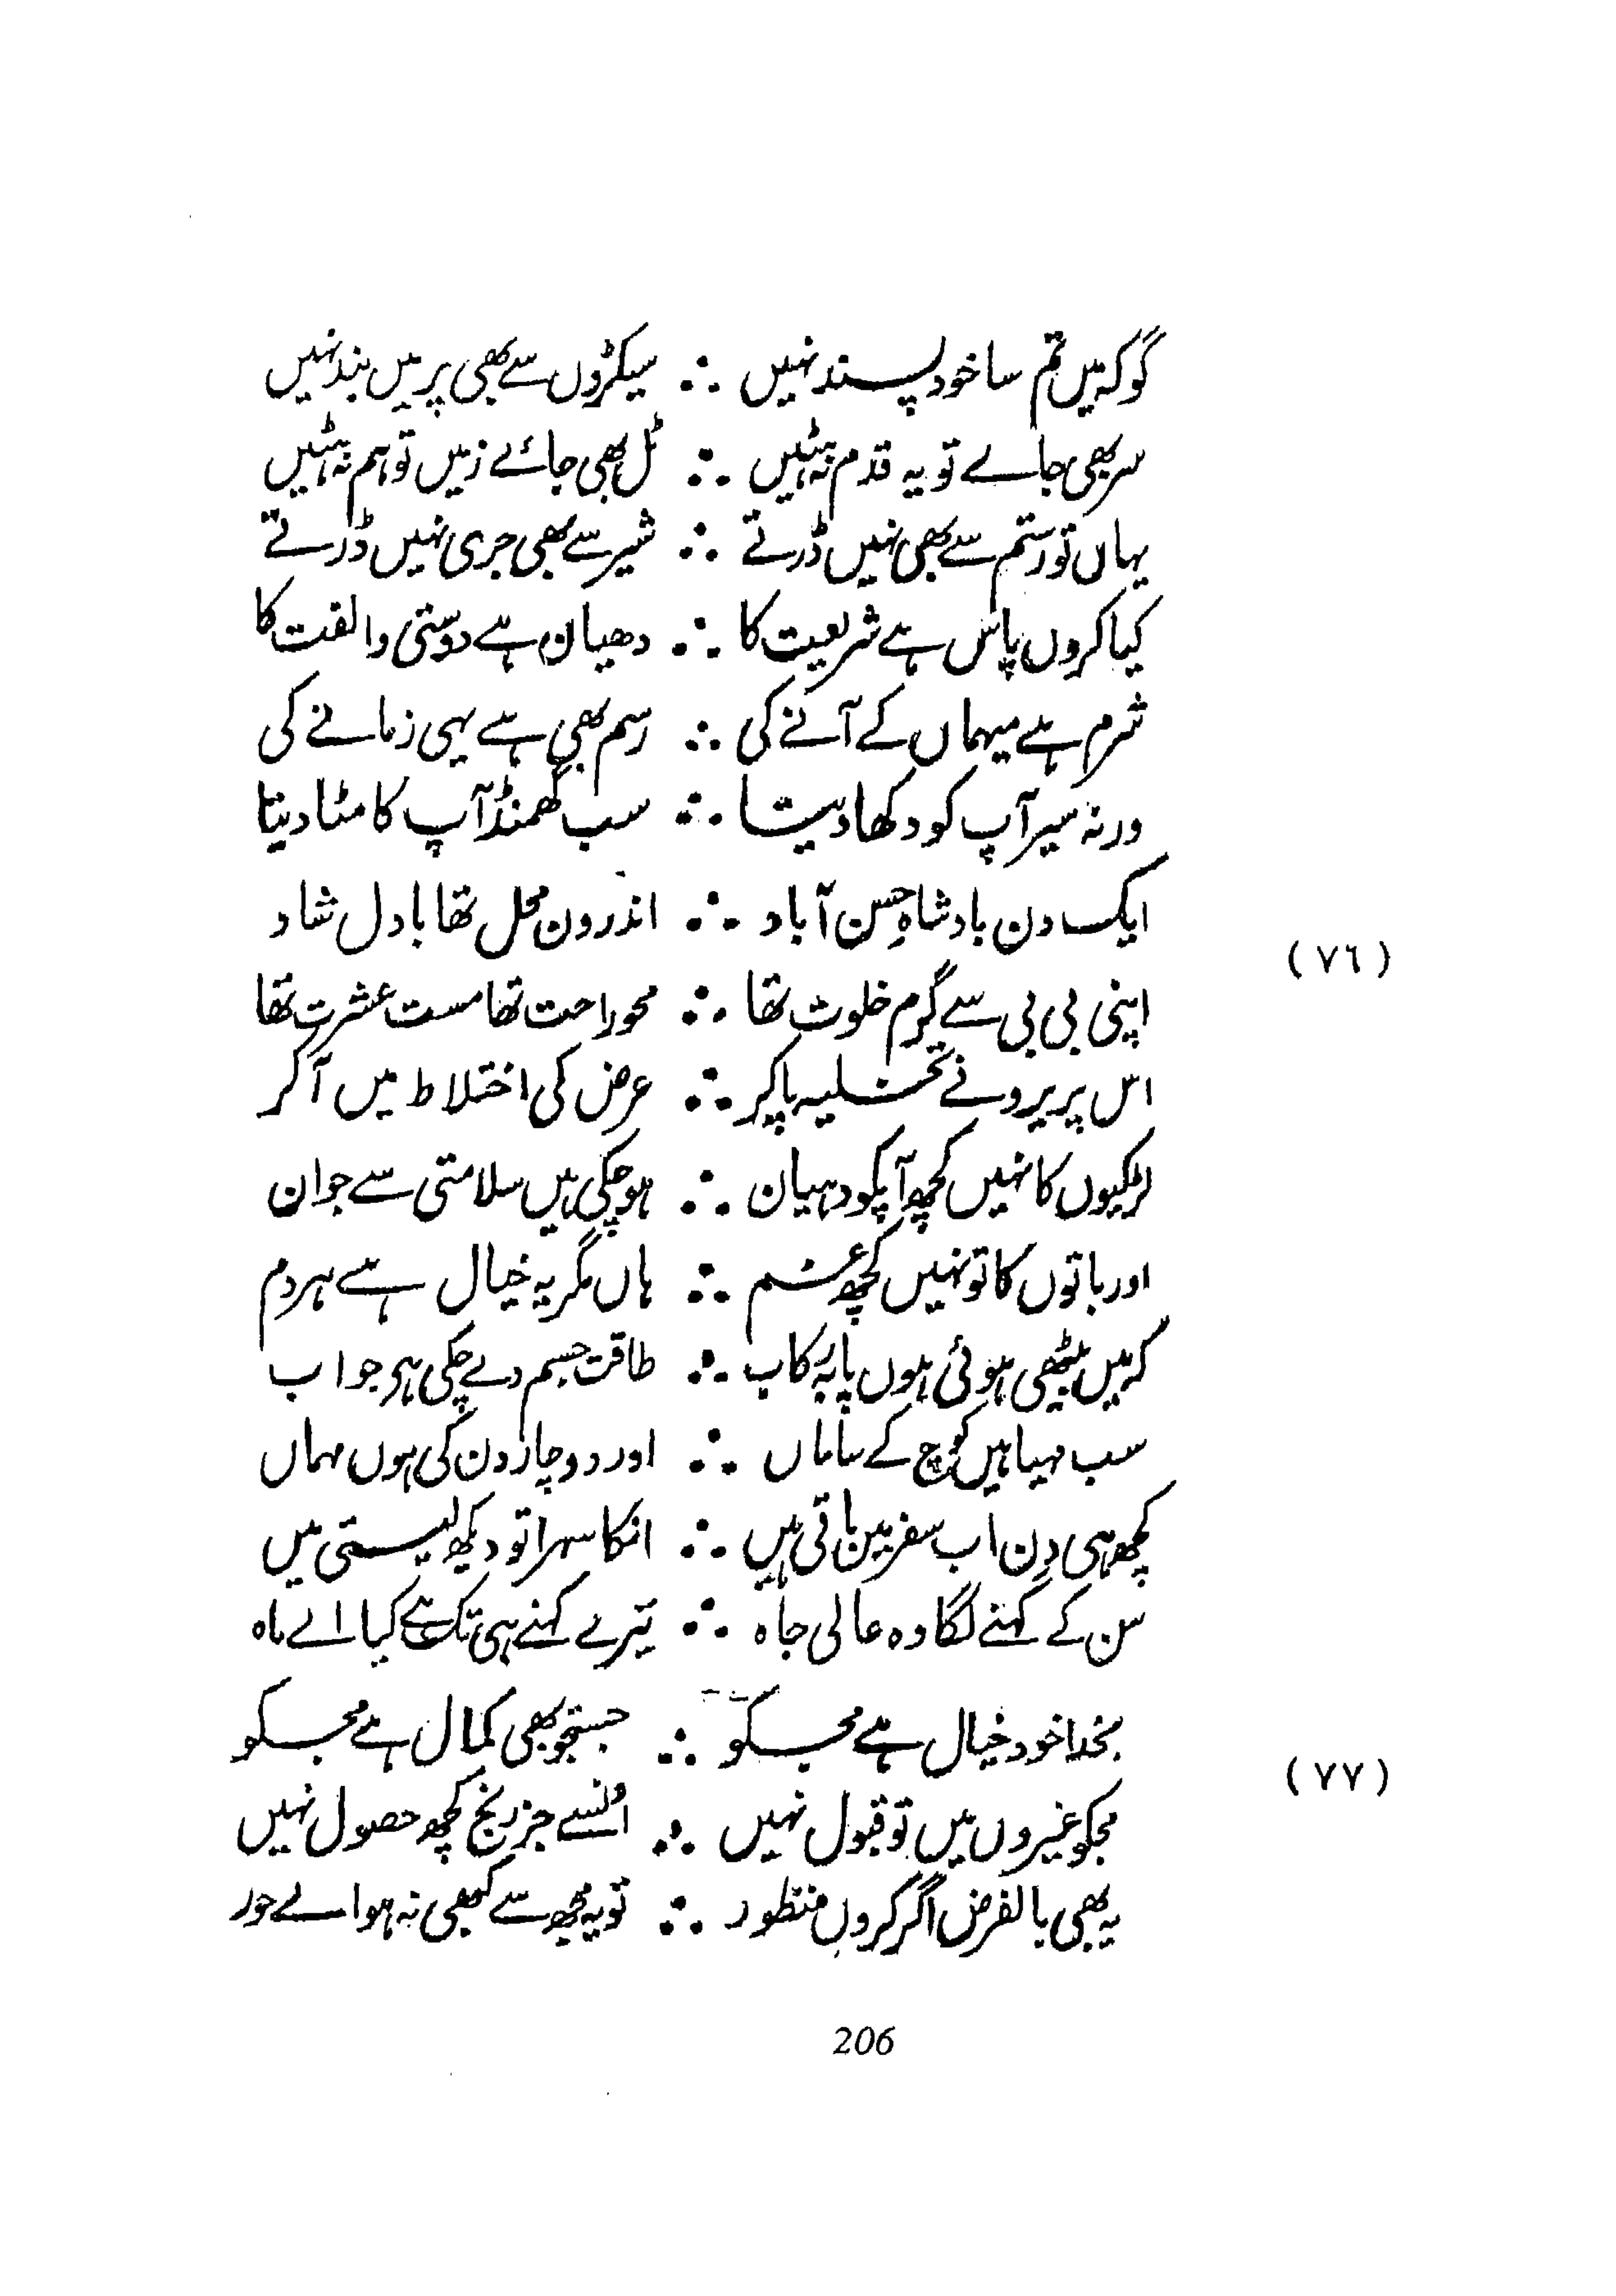 گو کہ میں تم سا خود پسند نہیں ∴ سیکڑوں سے بھی پر میں بند نہیں
سر بھی جاے تو یہ قدم نہ ہٹیں ∴ ٹل بھی جائے زمیں تو ہم نہ ہٹیں
یہاں تو رستم سے بھی نہیں ڈرتے ∴ شیر سے بھی جری نہیں ڈرتے
کیا کروں پاس ہے شریعت کا ∴ دھیان ہے دوستی و الفت کا
شرم ہے میہماں کے آنے کی ∴ رسم بھی ہے یہی زمانے کی
ورنہ سیر آپ کو دکھا دیتا ∴ سب گھمنڈ آپ کا مٹا دیتا
ایک دن بادشاہِ حسن آباد ∴ اندرون محل تھا بادل شاد
(٧٦)
اپنی بی بی سے گرم خلوت تھا ∴ محو راحت تھا مست عشرت تھا
اس پریرو نے تخلیہ پا کر ∴ عرض کی اختلاط میں آ کر
لڑکیوں کا نہیں کچھ آپکو دہیان ∴ ہو چکی ہیں سلامتی سے جوان
اور باتوں کا تو نہیں کچھ غم ∴ ہاں مگر یہ خیال ہے ہر دم
کہ میں بیٹھی ہوئی ہوں پا بہ رکاب ∴ طاقت جسم دے چکی ہی جواب
سب مہیا ہیں کوچ کے ساماں ∴ اور دو چار دن کی ہوں مہماں
کچھ ہی دن اب سفر میں باقی ہیں ∴ انکا سہرا تو دیکھ لیتی میں
سن کے کہنے لگا وہ عالی جاہ ∴ تیرے کہنے ہی تک ہے کیا اے ماہ
بخدا خود خیال ہے مجکو ∴ جستجو بھی کمال ہے مجکو
(٧٧)
مجکو غیروں میں تو قبول نہیں ∴ اُنسے جز رنج کچھ حصول نہیں
یہ بھی بالفرض اگر کروں منظور ∴ تو یہ مجھ سے کبھی نہ ہو اے حور
206